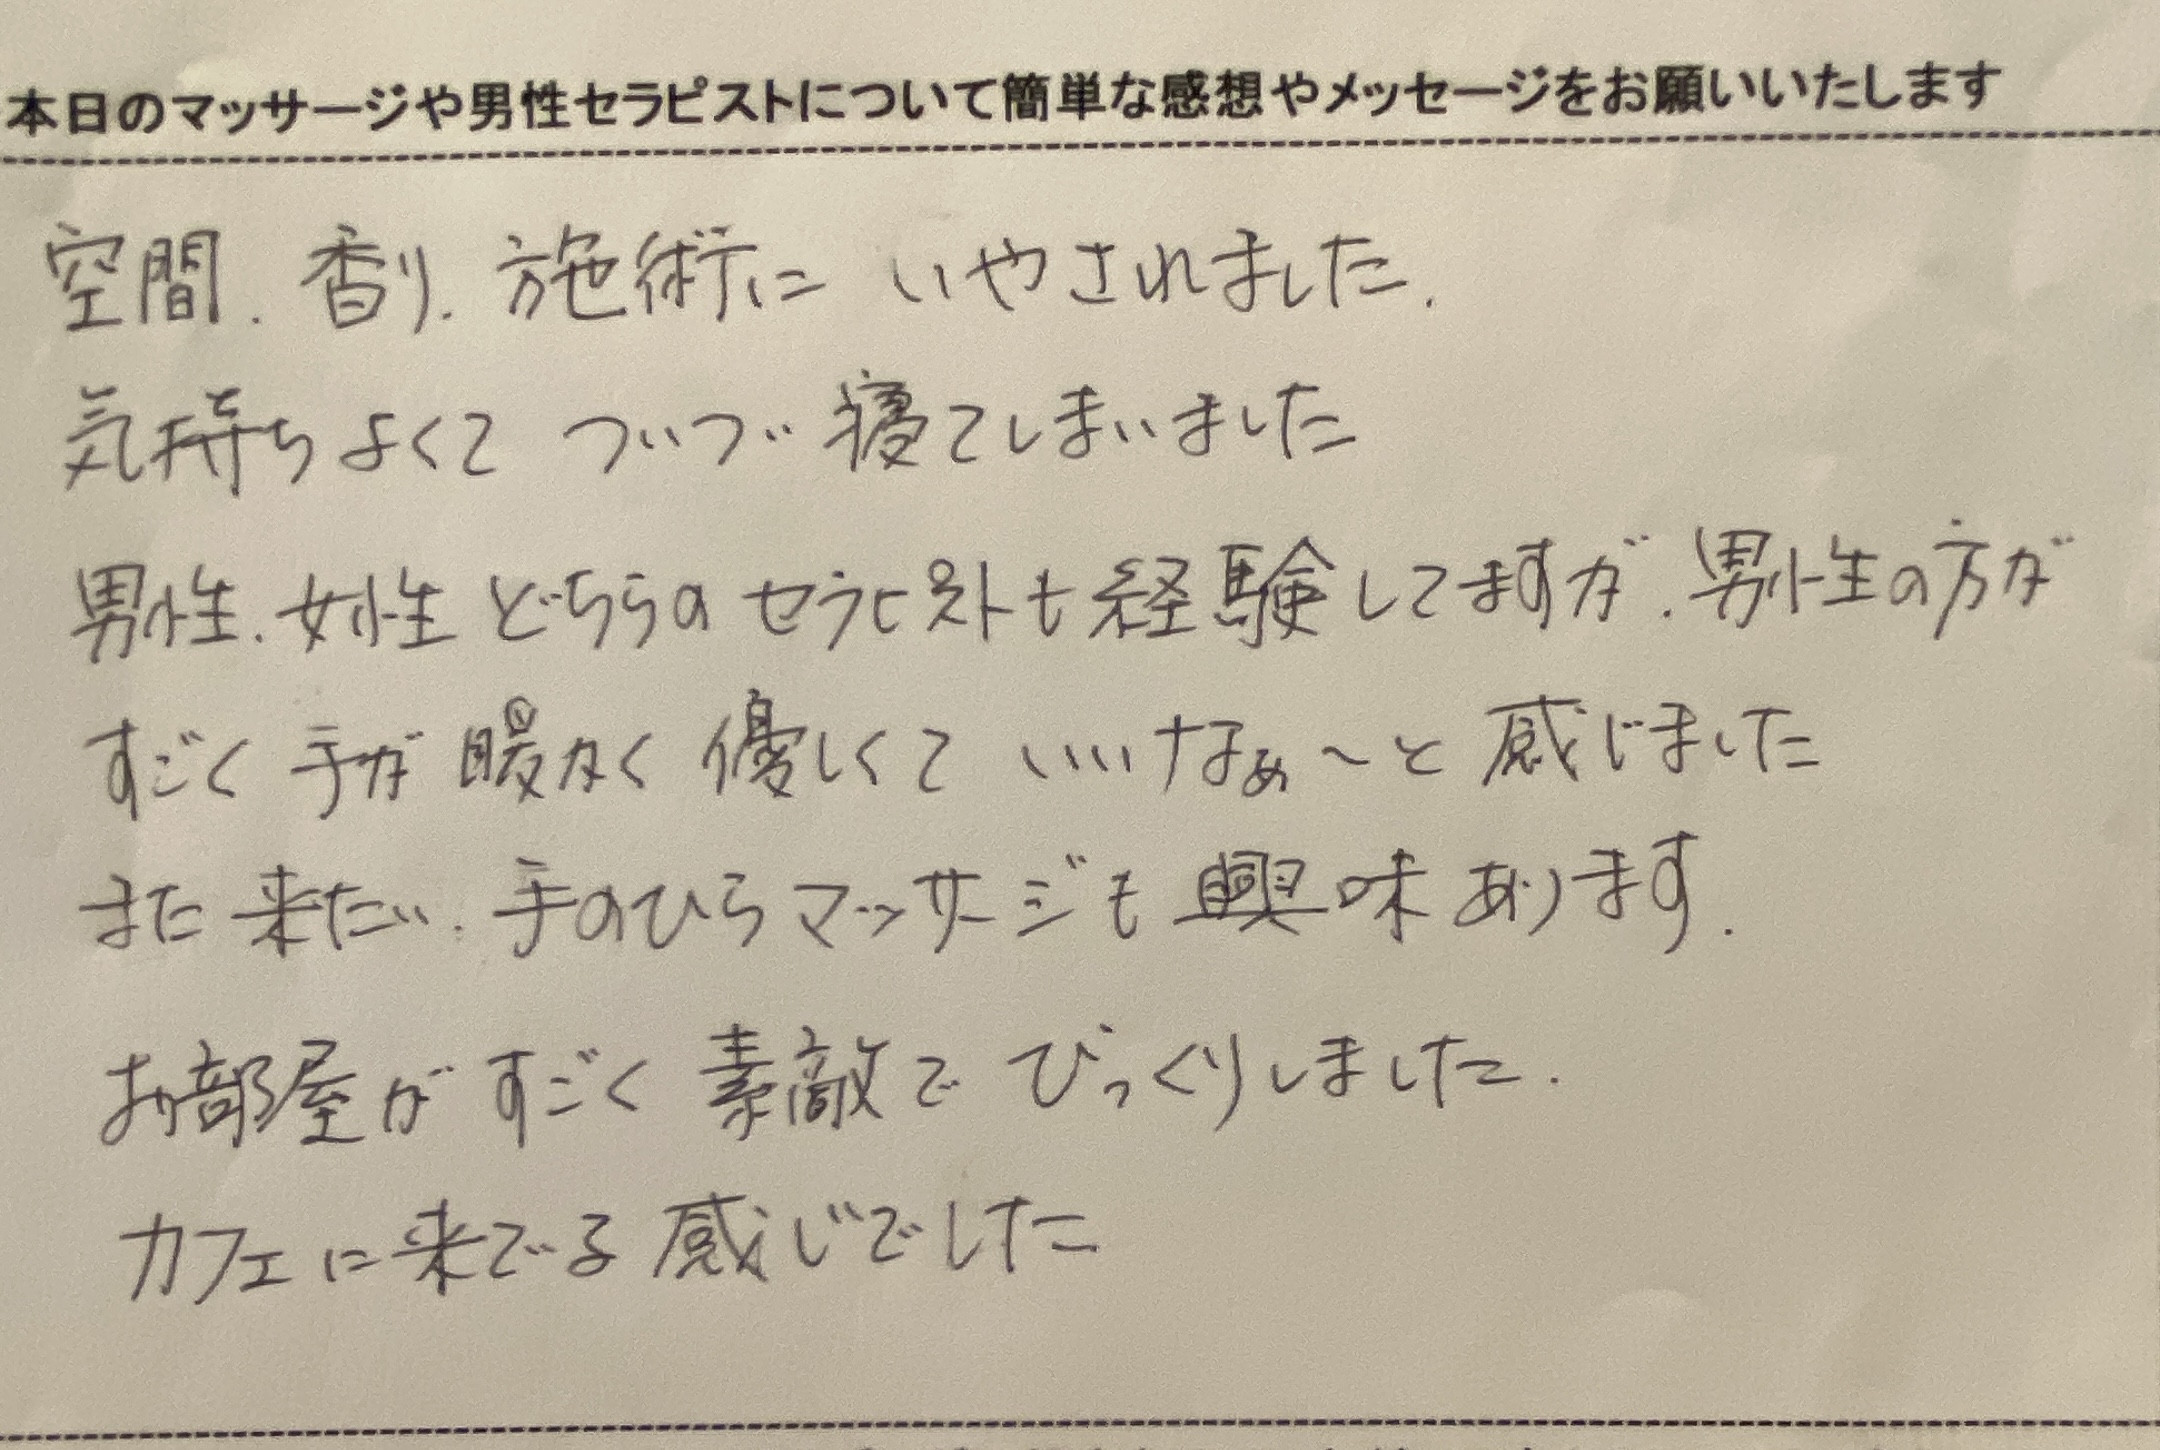 本日のマッサージや男性セラピストについて簡単な感想やメッセージをお願いいたします
空間.香り.施術に いやされました.
気持ちよくて ついつい寝てしまいました
男性.女性どちらのセラピストも経験してますが.男性の方が
すごく 手が暖かく優しくて いいなぁ〜と感じました
また来たい.手のひらマッサージも興味あります.
お部屋がすごく素敵でびっくりしました.
カフェに来てる感じでした